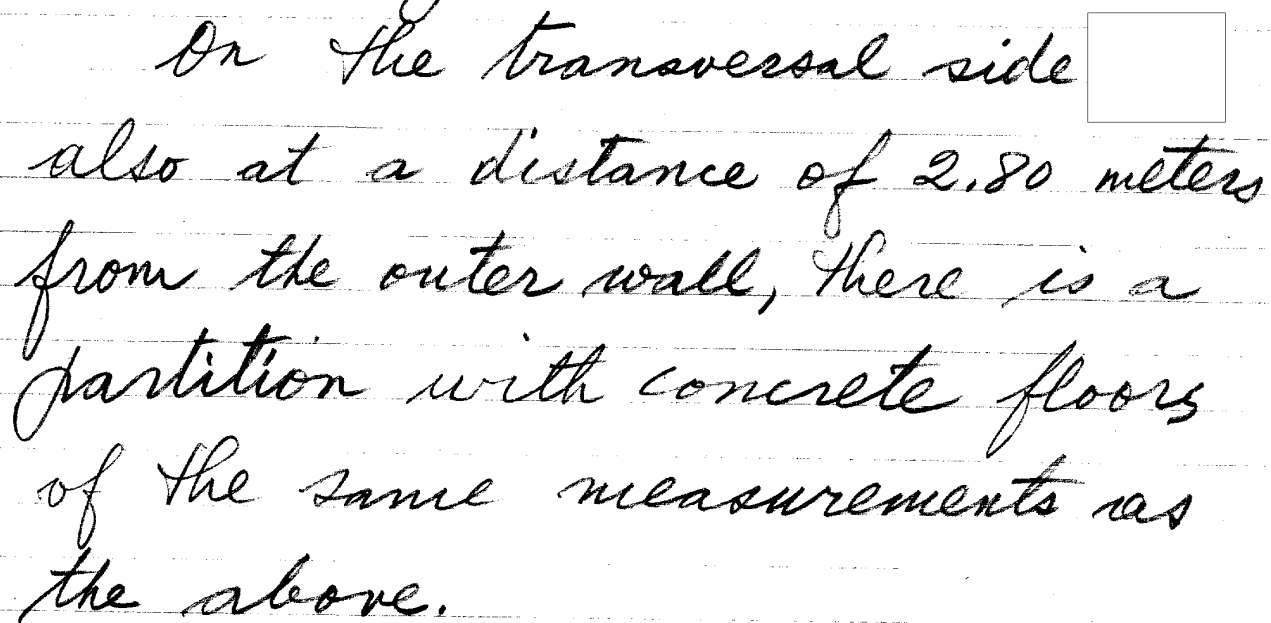 On the transversal side
also at a distance of 2.80 meters
from the outer wall, there is a
partition with concrete floors
of the same measurements as
the above.